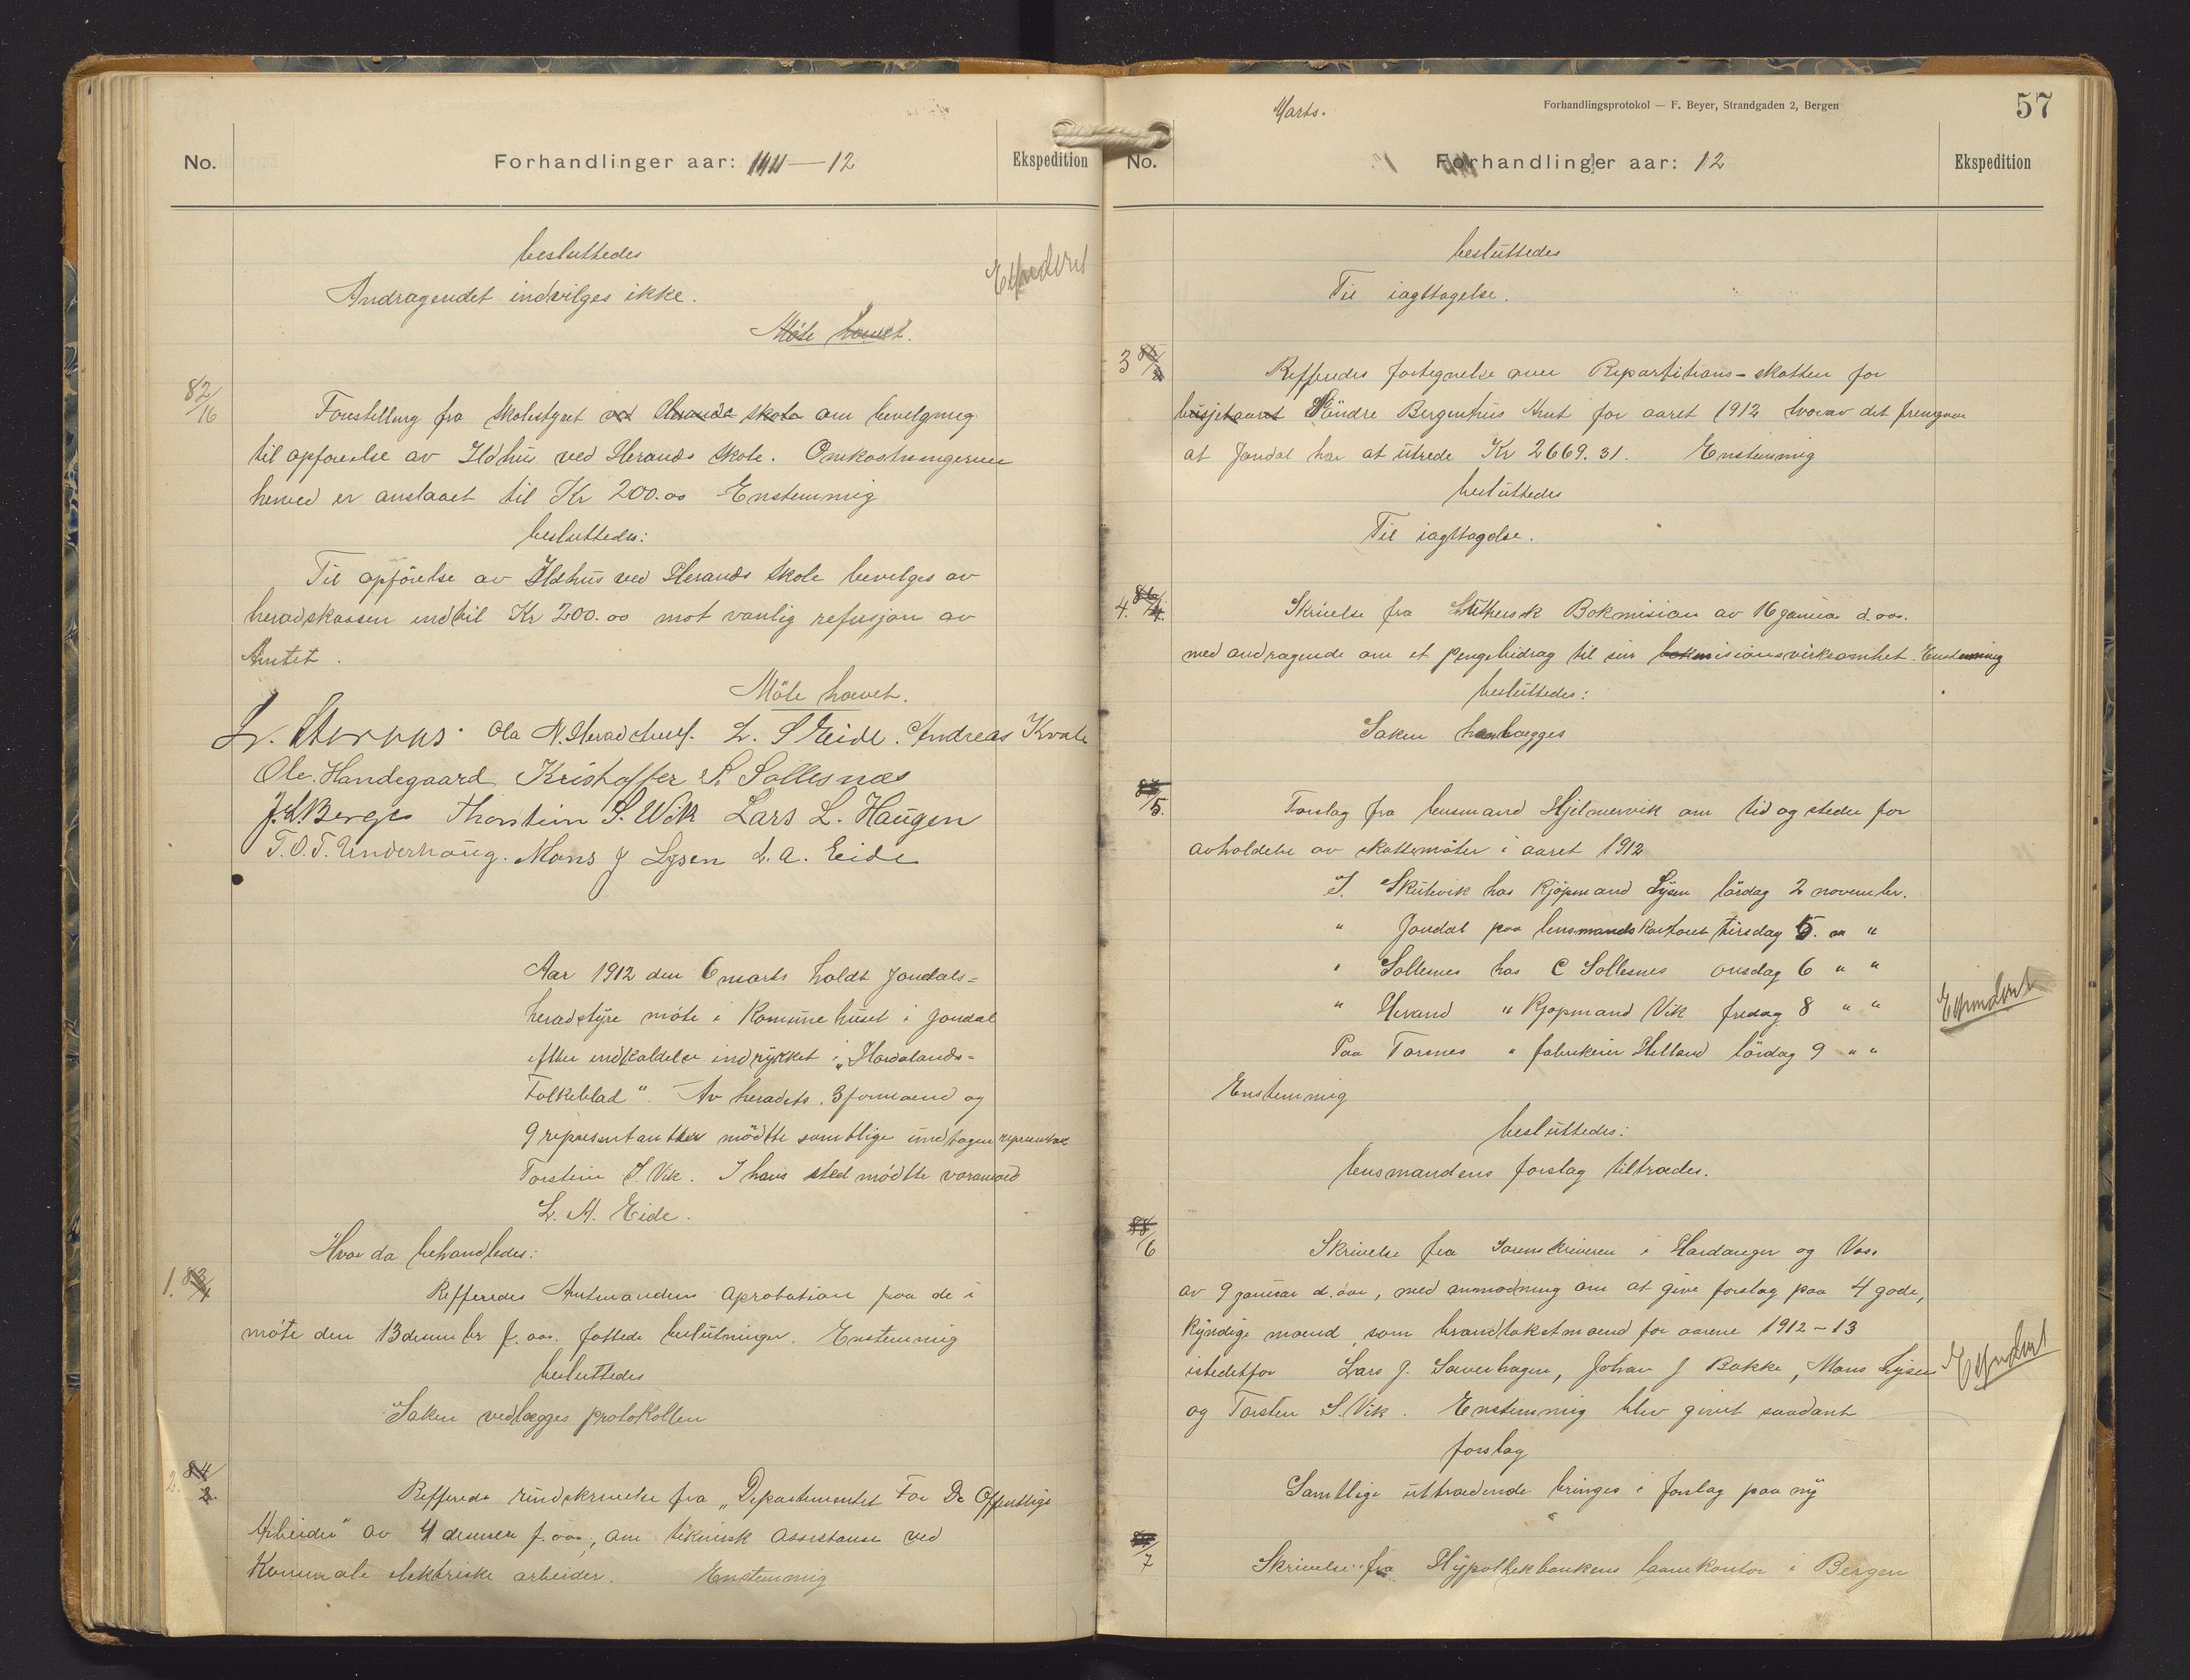 No.
Forhandlinger aar: 1911 — 12
Ekspedition
besluttedes
Andragendet indvilges ikke.
Expedert
Møte hævet.
82/16
Forestilling fra Skolestyret ved Herands skole om bevilgning
til opførelse av Ildhus ved Herands skole. Omkostningerne
herved er anslaaet til Kr 200.00 Enstemmig
besluttedes:
Til opförelse av Ildhus ved Herands skole bevilges av
heradskassen indtil Kr 200.00 mot vanlig refusjon av
Amtet.
Möte hævet.
Ola N. Heradstveit. L. S Eide. Andreas Kvale
Ole. Handegaard Kristoffer S. Sollesnæs
J. S. Berge Thorstein S. Wik Lars L. Haugen
T. O. T. Underhaug. Mons J Lysen L. A. Eide
Aar 1912 den 6 marts holdt Jondals=
heradstyre møte i Komunehuset i Jondal
efter indkaldelse indrykket i „Hordalands-
Folkeblad". Av heradets 3 formænd og
9 representanter mødtte samtlige undtagen representant
Torstein S. Vik. I hans sted mødtte varamand
L. A. Eide.
Hvor da behandledes:
1. 83/1
Refferedes Amtmandens aprobation paa de i
møte den 13 desember f. aar. fattede beslutninger. Enstemmig
besluttedes
Saken vedlægges protokollen
2. 84/2.
Refferedes rundskrivelse fra „Departementet For De Offentlige
Arbeider" av 4 desember f. aar, om teknisk assistanse ved
Komunale elektriske arbeider. Enstemmig
Marts.
Forhandlingsprotokol — F. Beyer, Strandgaden 2, Bergen
57
No.
Forhandlinger aar: 12
Ekspedition
besluttedes
Til iagttagelse.
3 85/3
Refferedes fortegnelse over Repartitions-skatten for
busjetaaret Söndre Bergenhus Amt for aaret 1912 hvorav det fremgaar
at Jondal har at utrede Kr 2669.31. Enstemmig
besluttedes
Til iagttagelse.
4. 86/4.
Skrivelse fra Luthersk Bokmision av 16 januar d. aar.
med andragende om et pengebidrag til sin bokmisionsvirksomhet. Enstemmig
besluttedes:
Saken henlægges
87/5.
Forslag fra lensmand Hjelmervik om tid og steder for
avholdelse av skattemøter i aaret 1912
I. Skutevik hos Kjøpmand Lysen lördag 2 november.
" Jondal paa lensmandskontoret tirsdag 5. " "
" Sollesnes hos C Sollesnes onsdag 6 " "
" Herand " Kjøpmand Vik fredag 8 " "
Expedert
Paa Torsnes " fabrikeier Helland lördag 9 " "
Enstemmig
besluttedes:
lensmandens forslag tiltrædes.
88/6
Skrivelse fra Sorenskriveren i Hardanger og Voss
av 9 januar d. aar, med anmodning om at give forslag paa 4 gode,
kyndige mænd som brandtakstmænd for aarene 1912-13
istedetfor Lars J. Samerhagen, Johan J Bakke, Mons Lysen
Expedert
og Torsten S. Vik. Enstemmig blev givet saadant
forslag
Samtlige uttrædende bringes i forslag paa ny
89/7
Skrivelse fra Hypothekbankens laanekontor i Bergen